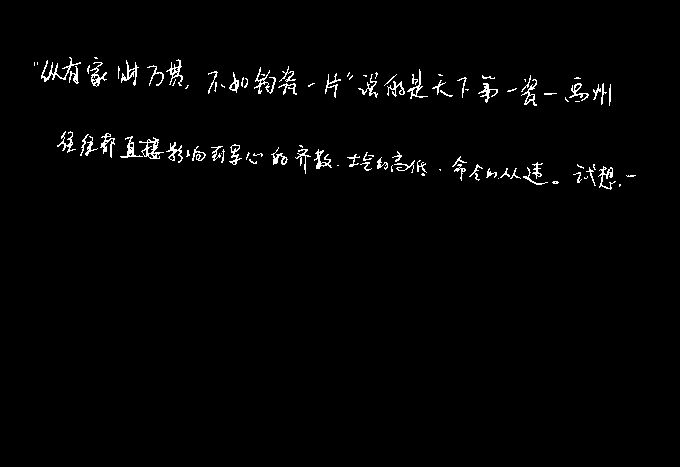 “纵有家财万贯，不如钧瓷一片”说的是天下第一瓷一禹州
往往都直接影响到军心的齐散、士气的高低、命令的从违。试想，一